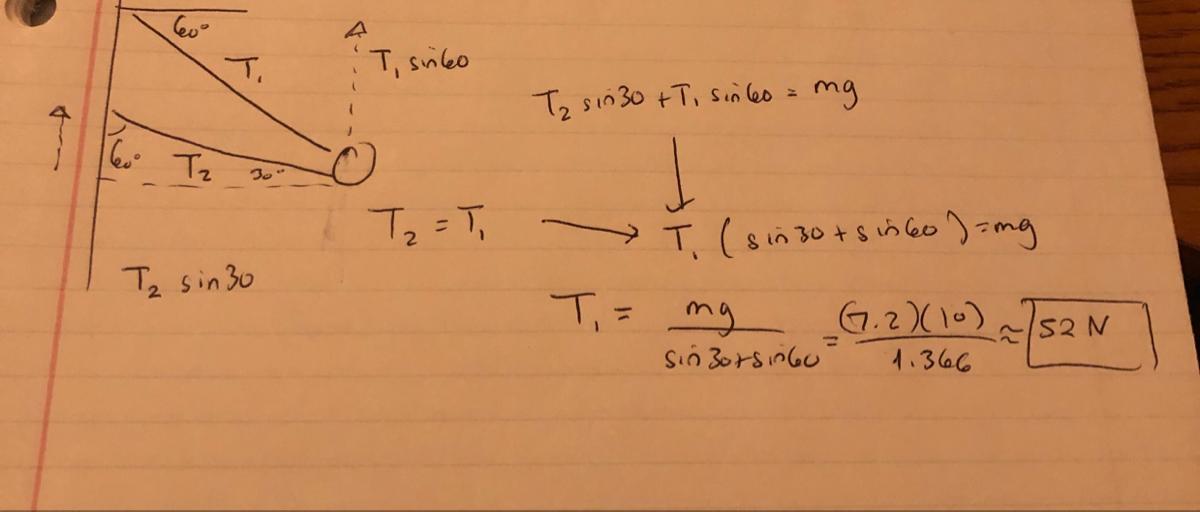 60°
T₁
T₁ sin60
60°
T₂
30°
T₂ sin30
T₂ sin30 + T₁ sin60 = mg
T₂ = T₁ → T₁ (sin30 + sin60) = mg
T₁ = mg / sin30 + sin60 = (7.2)(10) / 1.366 ≈ 52 N